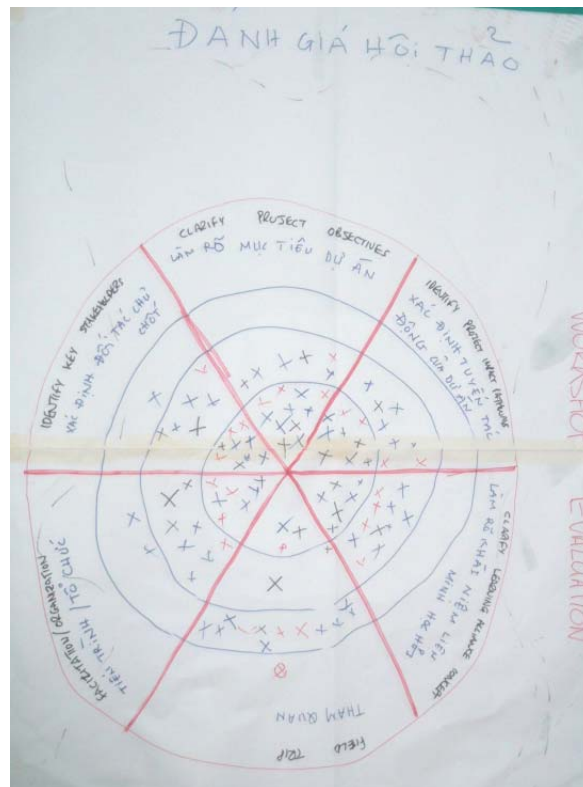 ĐÁNH GIÁ HỘI THẢO
2
CLARIFY PROJECT OBJECTIVES
LÀM RÕ MỤC TIÊU DỰ ÁN
IDENTIFY PROJECT IMPACT PATHWAYS
XÁC ĐỊNH TUYẾN TÁC
ĐỘNG CỦA DỰ ÁN
CLARIFY LEARNING ALLIANCE CONCEPT
LÀM RÕ KHÁI NIỆM LIÊN
MINH HỌC HỎI
FIELD TRIP
THAM QUAN
FACILITATION/ORGANIZATION
TIẾN TRÌNH/TỔ CHỨC
IDENTIFY KEY STAKEHOLDERS
XÁC ĐỊNH ĐỐI TÁC CHỦ
CHỐT
WORKSHOP EVALUATION